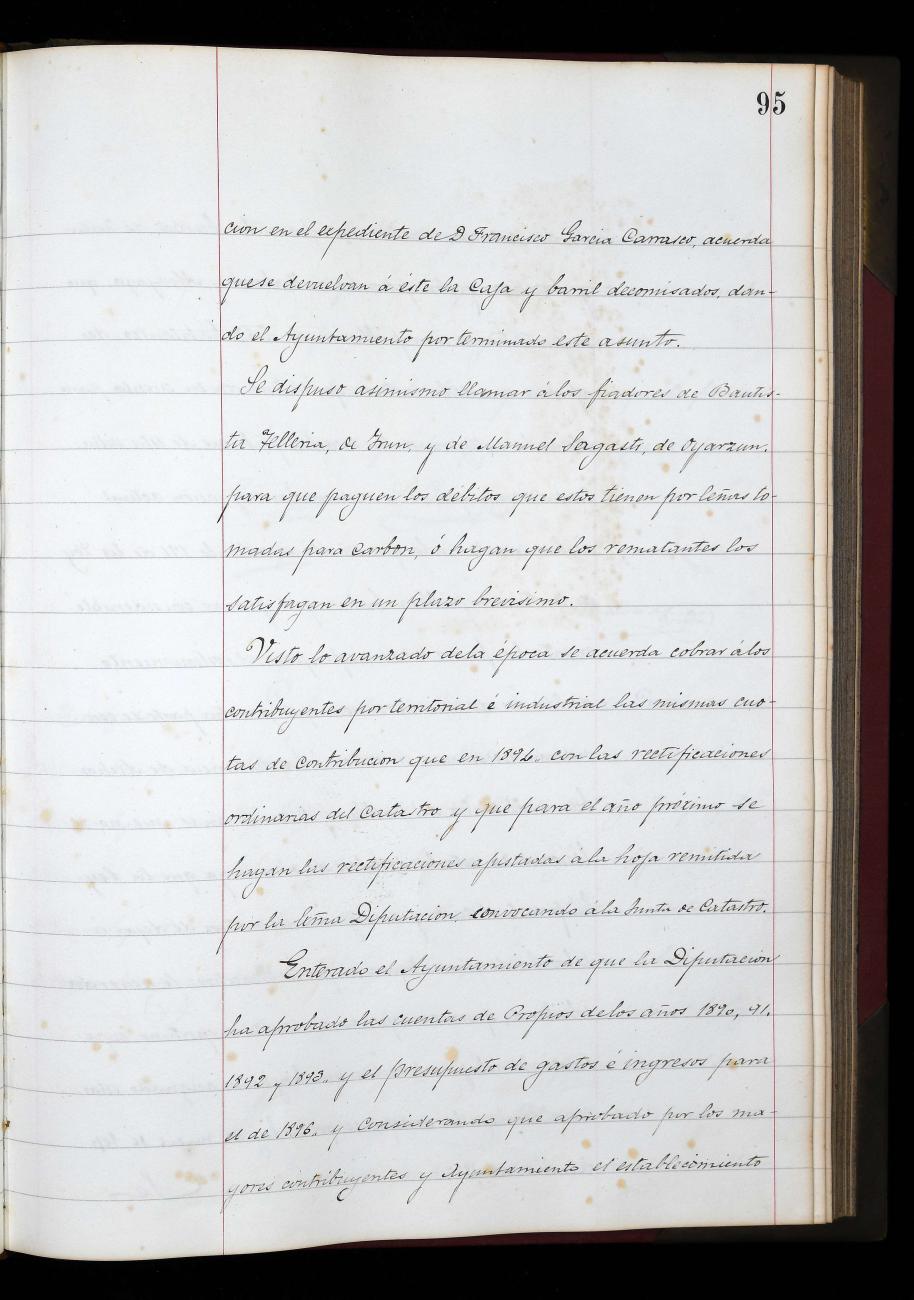 95
cion en el expediente de D Francisco Garcia Carrasco, acuerda
que se devuelvan á éste la Caja y barril decomisados, dan-
do el Ayuntamiento por terminado este asunto.
Se dispuso asimismo llamar á los fiadores de Bautis-
ta Telleria, de Irun, y de Manuel Sagasti, de Oyarzun,
para que paguen los débitos que estos tienen por leñas to-
madas para carbon, ó hagan que los rematantes los
satisfagan en un plazo brevisimo.
Visto lo avanzado de la época se acuerda cobrar á los
contribuyentes por territorial é industrial las mismas cuo-
tas de contribucion que en con las rectificaciones
ordinarias del Catastro y que para el año próximo se
hagan las rectificaciones ajustadas á la hoja remitida
por la Diputacion, convocando á la Junta de Catastro.
Enterado el Ayuntamiento de que la Diputacion
ha aprobado las cuentas de Propios de los años 1890, 91,
1892 y 1893, y el presupuesto de gastos é ingresos para
el de 1896, y considerando que aprobado por los ma-
yores contribuyentes y Ayuntamiento el establecimiento